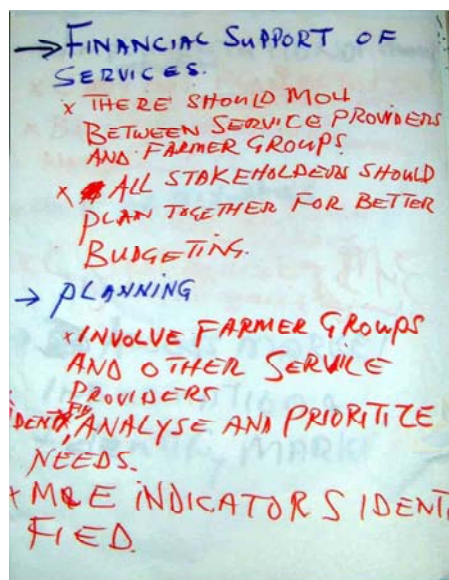 → FINANCIAL SUPPORT OF
SERVICES.
x THERE SHOULD MOU
BETWEEN SERVICE PROVIDERS
AND FARMER GROUPS.
x ALL STAKEHOLDERS SHOULD
PLAN TOGETHER FOR BETTER
BUDGETING.
→ PLANNING
x INVOLVE FARMER GROUPS
AND OTHER SERVICE
PROVIDERS
IDENTIFY, ANALYSE AND PRIORITIZE
NEEDS.
x M&E INDICATORS IDENTI
FIED.